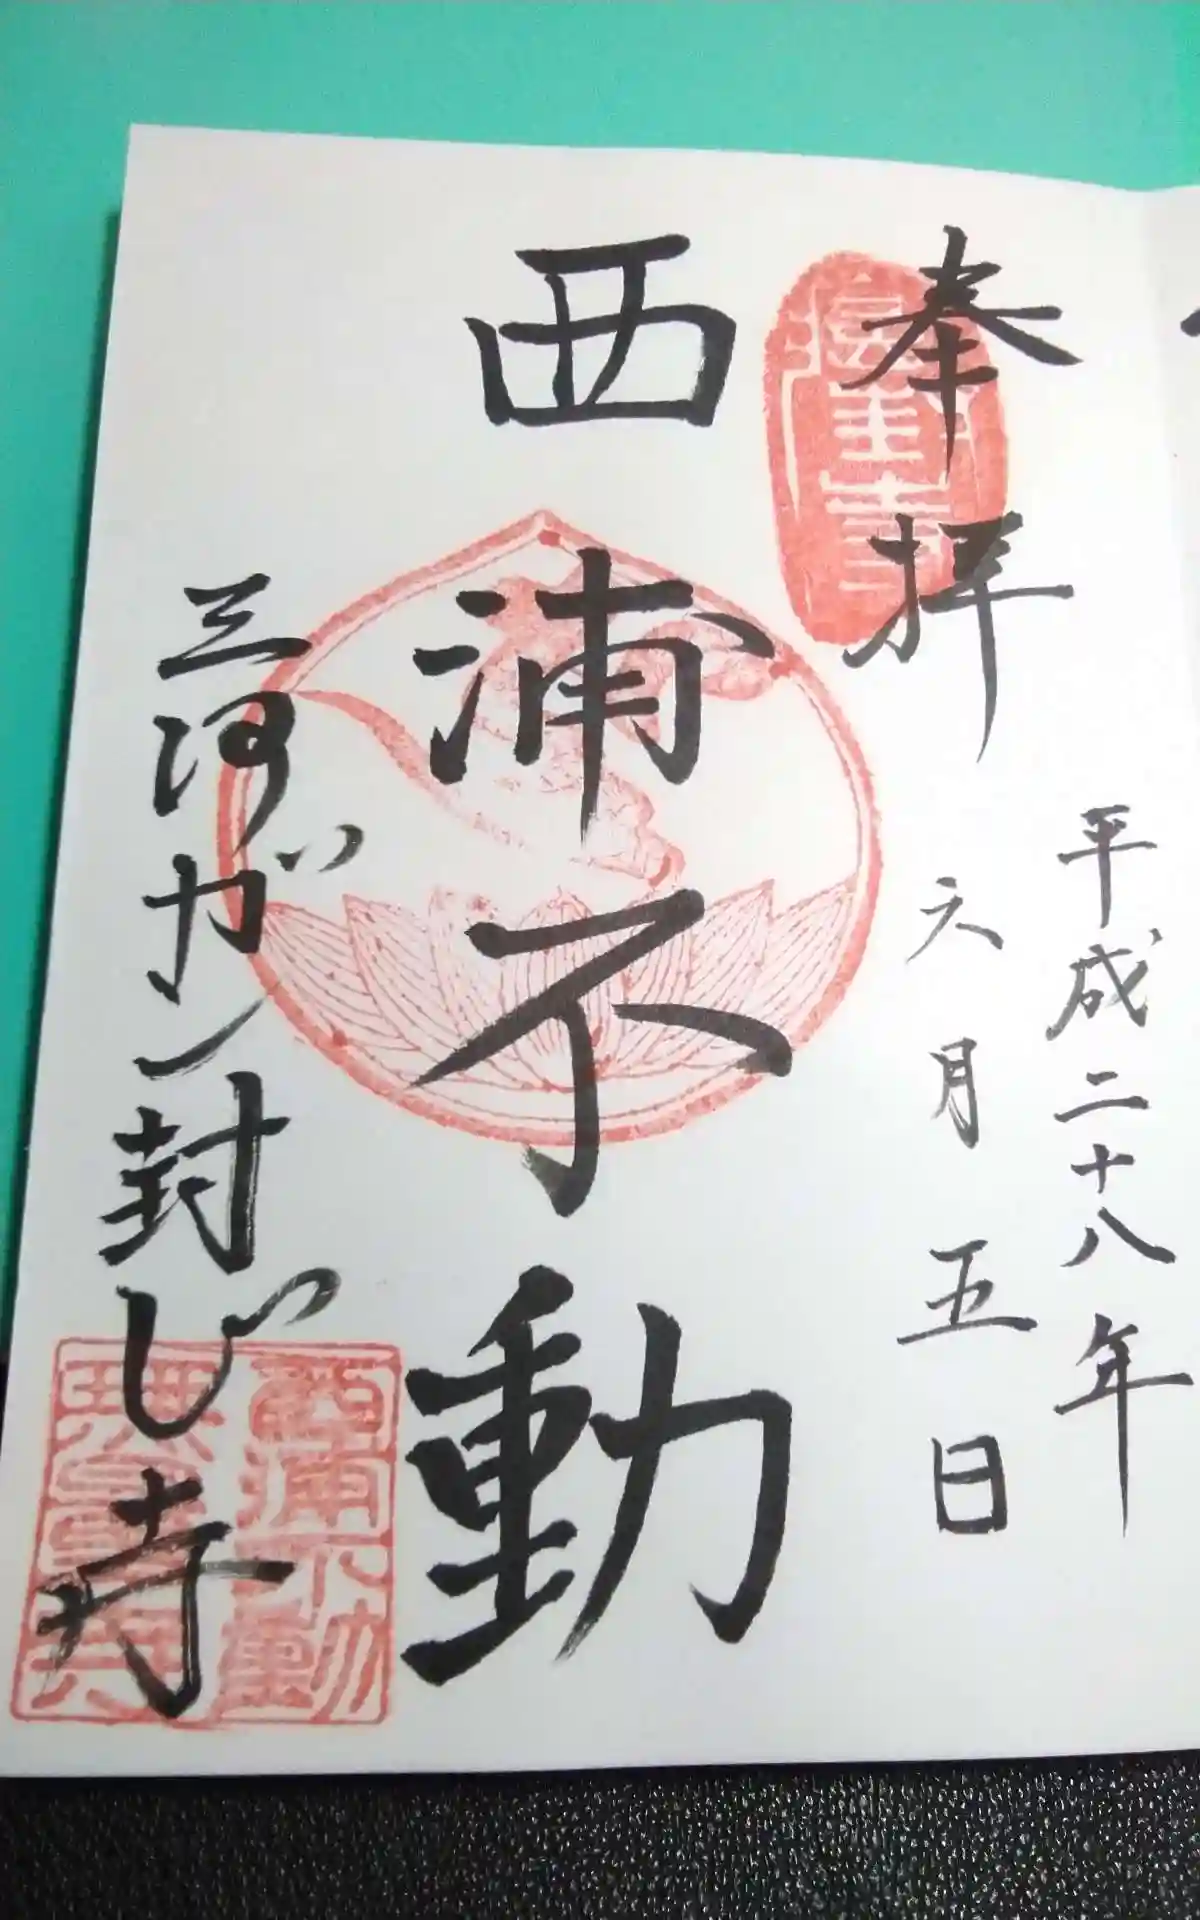 奉拝
平成二十八年
六月五日
西浦不動
三河ガン封じ寺
西浦不動